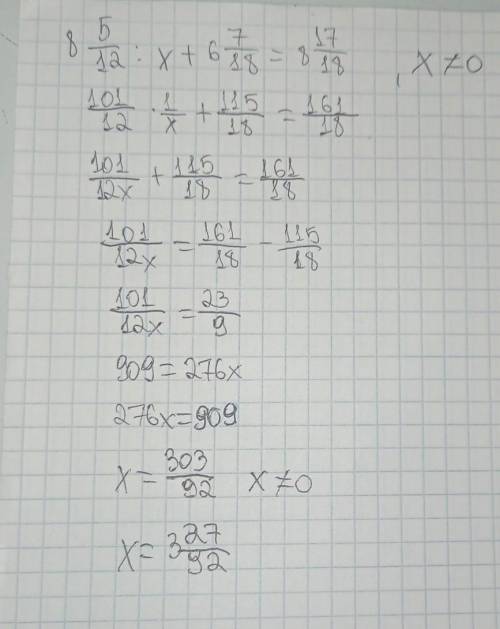 8 5/12 : x + 6 7/18 = 8 17/18 , x ≠ 0
101/12 · 1/x + 115/18 = 161/18
101/12x + 115/18 = 161/18
101/12x = 161/18 - 115/18
101/12x = 23/9
909 = 276x
276x = 909
x = 303/92 x ≠ 0
x = 3 27/92